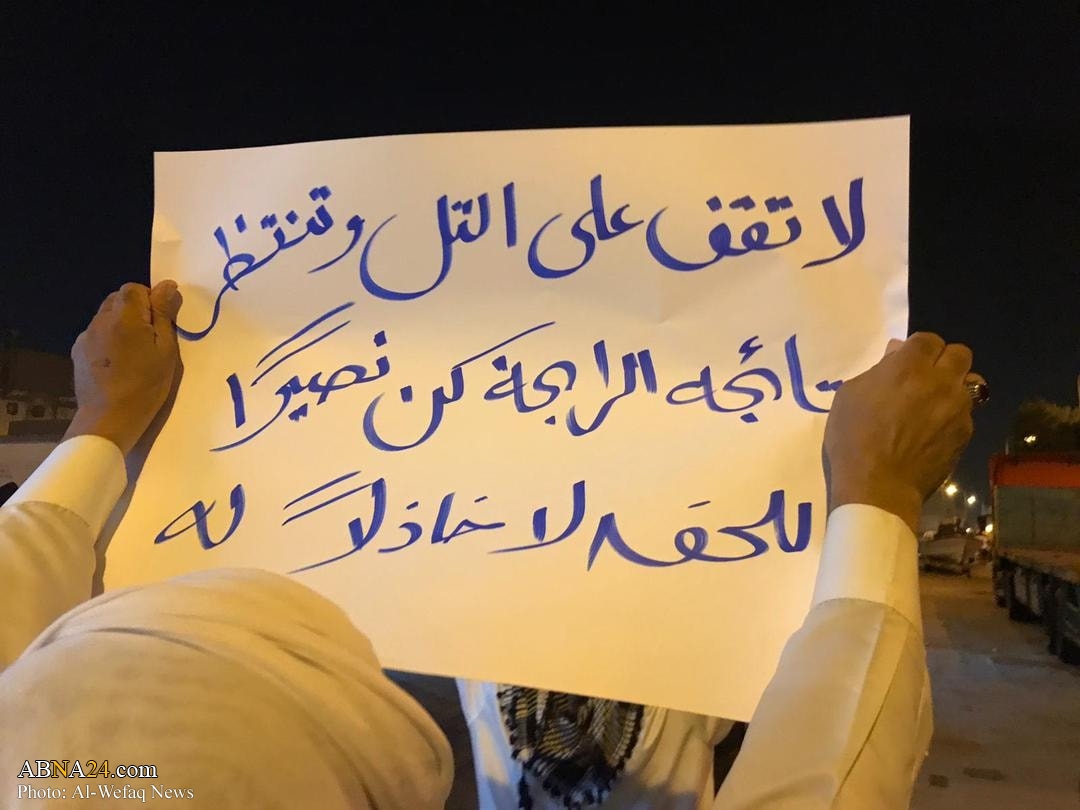 لا تقف على التل وتنتظر
نتائجه الرابحة كن نصيرًا
للحق لا خاذلاً له
ABNA24.com
Photo: Al-Wefaq News